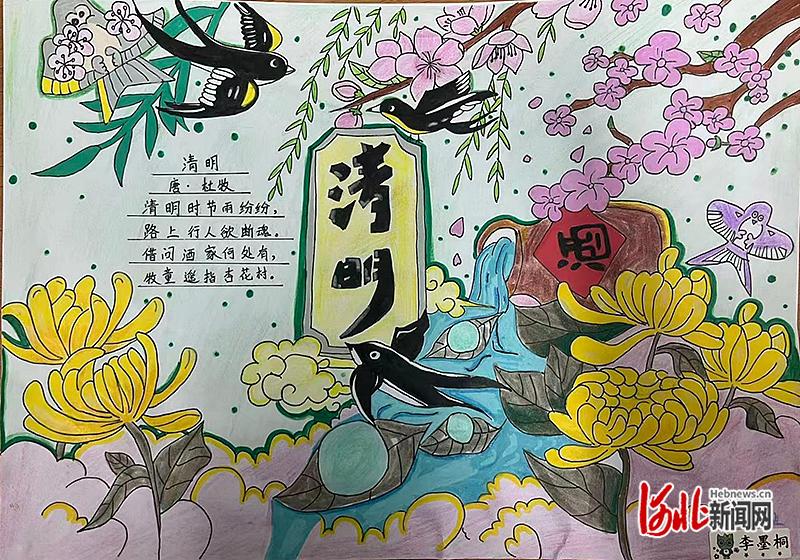 清明
唐·杜牧
清明时节雨纷纷，
路上行人欲断魂。
借问酒家何处有，
牧童遥指杏花村。
清明
河北新闻网
Hebnews.cn
李墨桐